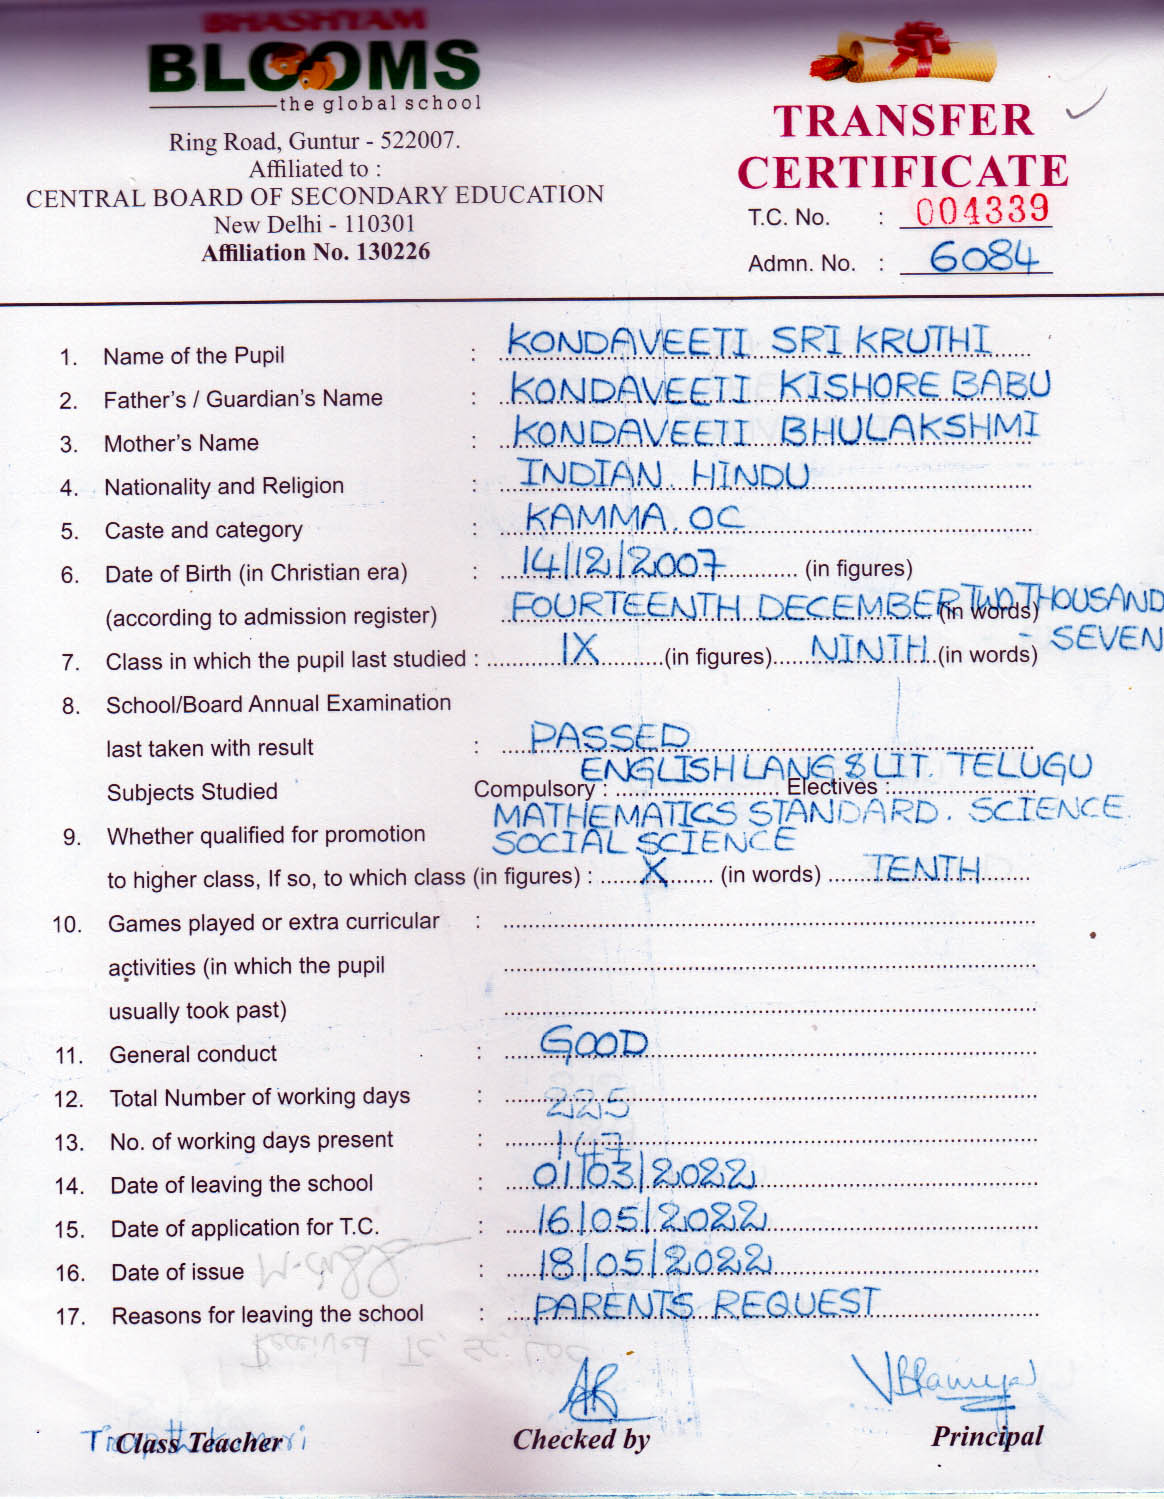 BHASHYAM
BLOOMS
the global school
Ring Road, Guntur - 522007.
Affiliated to :
CENTRAL BOARD OF SECONDARY EDUCATION
New Delhi - 110301
Affiliation No. 130226
TRANSFER
CERTIFICATE
T.C. No. : 004339
Admn. No. : 6084
1. Name of the Pupil : KONDAVEETI SRI KRUTHI
2. Father's / Guardian's Name : KONDAVEETI KISHORE BABU
3. Mother's Name : KONDAVEETI BHULAKSHMI
4. Nationality and Religion : INDIAN HINDU
5. Caste and category : KAMMA. OC
6. Date of Birth (in Christian era) : 14/12/2007 (in figures)
(according to admission register) FOURTEENTH DECEMBER TWO THOUSAND (in words)
SEVEN
7. Class in which the pupil last studied : IX (in figures) NINTH (in words)
8. School/Board Annual Examination
last taken with result : PASSED
ENGLISH LANG & LIT. TELUGU
Subjects Studied Compulsory : Electives :
MATHEMATICS STANDARD. SCIENCE.
9. Whether qualified for promotion SOCIAL SCIENCE
to higher class, If so, to which class (in figures) : X (in words) TENTH
10. Games played or extra curricular :
activities (in which the pupil
usually took past)
11. General conduct : GOOD
12. Total Number of working days : 225
13. No. of working days present : 147
14. Date of leaving the school : 01/03/2022
15. Date of application for T.C. : 16/05/2022
16. Date of issue : 18/05/2022
17. Reasons for leaving the school : PARENTS REQUEST
Received Tc, Sc, Loc
AR
Class Teacher Checked by Principal